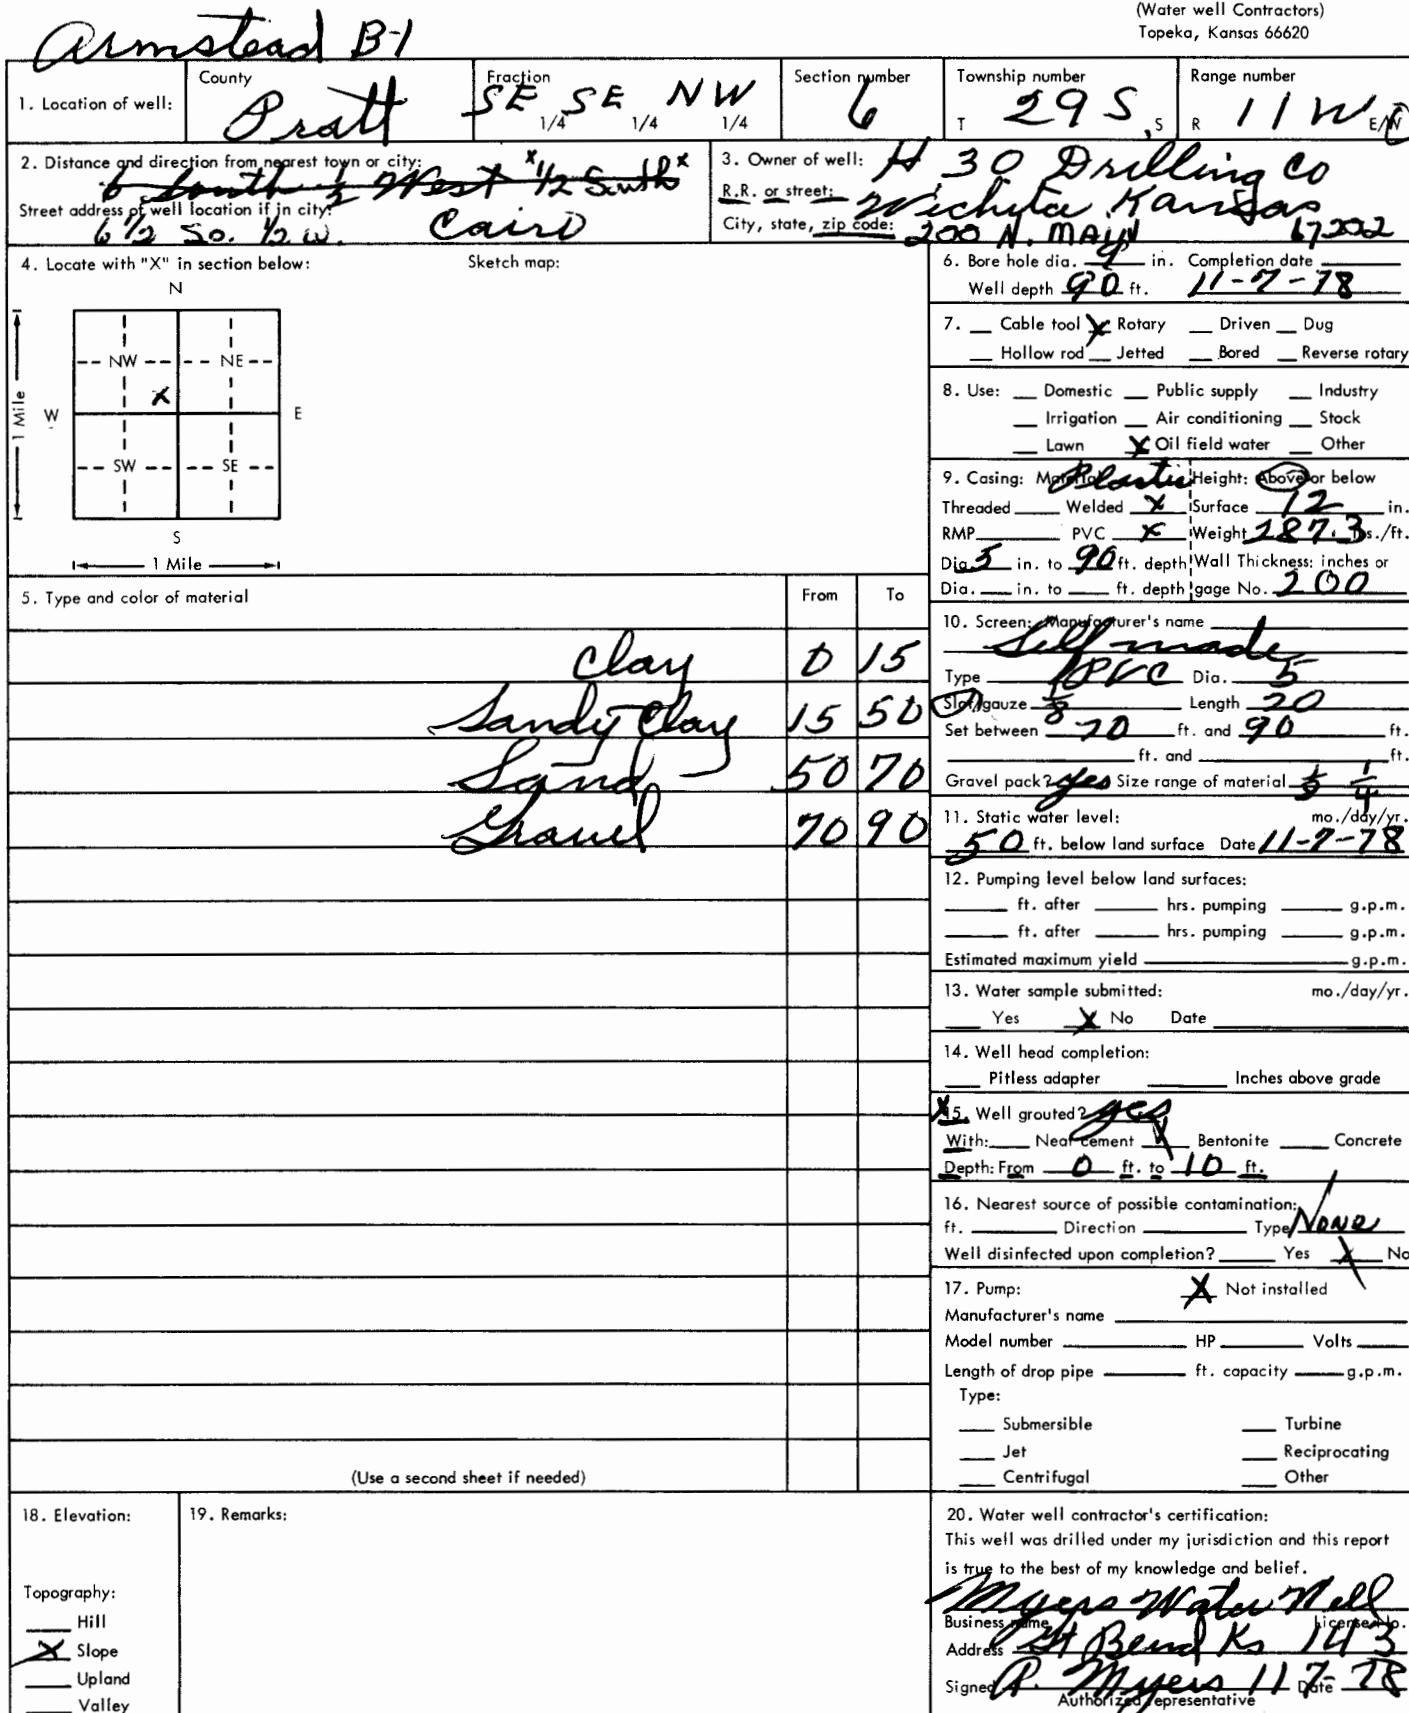 (Water well Contractors)
Topeka, Kansas 66620
Armstead B-1
1. Location of well:
County
Pratt
Fraction
SE 1/4 SE 1/4 NW 1/4
Section number
6
Township number
T 29 S , S
Range number
R 11 W E/W
2. Distance and direction from nearest town or city:
6 South 1/2 West x 1/2 South x
Street address of well location if in city:
6 1/2 So. 1/2 W. Cairo
3. Owner of well: H 30 Drilling Co
R.R. or street: Wichita Kansas
City, state, zip code: 200 N. MAIN 67202
4. Locate with "X" in section below:
Sketch map:
N
NW NE
X
W E
1 Mile
SW SE
S
1 Mile
5. Type and color of material From To
Clay 0 15
Sandy Clay 15 50
Sand 50 70
Gravel 70 90
(Use a second sheet if needed)
6. Bore hole dia. in. Completion date
Well depth 90 ft. 11-7-78
7. Cable tool X Rotary Driven Dug
Hollow rod Jetted Bored Reverse rotary
8. Use: Domestic Public supply Industry
Irrigation Air conditioning Stock
Lawn X Oil field water Other
9. Casing: Material Plastic Height: Above or below
Threaded Welded X Surface 12 in.
RMP PVC X Weight 287.3 lbs./ft.
Dia. 5 in. to 90 ft. depth Wall Thickness: inches or
Dia. in. to ft. depth gage No. 200
10. Screen: Manufacturer's name
Self made
Type PVC Dia. 5
Slot/gauze 1/8 Length 20
Set between 70 ft. and 90 ft.
ft. and ft.
Gravel pack? yes Size range of material 1/4
11. Static water level: mo./day/yr.
50 ft. below land surface Date 11-7-78
12. Pumping level below land surfaces:
ft. after hrs. pumping g.p.m.
ft. after hrs. pumping g.p.m.
Estimated maximum yield g.p.m.
13. Water sample submitted: mo./day/yr.
Yes X No Date
14. Well head completion:
Pitless adapter Inches above grade
X 15. Well grouted? yes
With: Neat cement X Bentonite Concrete
Depth: From 0 ft. to 10 ft.
16. Nearest source of possible contamination:
ft. Direction Type None
Well disinfected upon completion? Yes X No
17. Pump: X Not installed
Manufacturer's name
Model number HP Volts
Length of drop pipe ft. capacity g.p.m.
Type:
Submersible Turbine
Jet Reciprocating
Centrifugal Other
18. Elevation:
Topography:
Hill
X Slope
Upland
Valley
19. Remarks:
20. Water well contractor's certification:
This well was drilled under my jurisdiction and this report
is true to the best of my knowledge and belief.
Myers Water Well
Business name License No.
Address Gt Bend Ks 143
Signed R. Myers 11 7- Date 78
Authorized representative